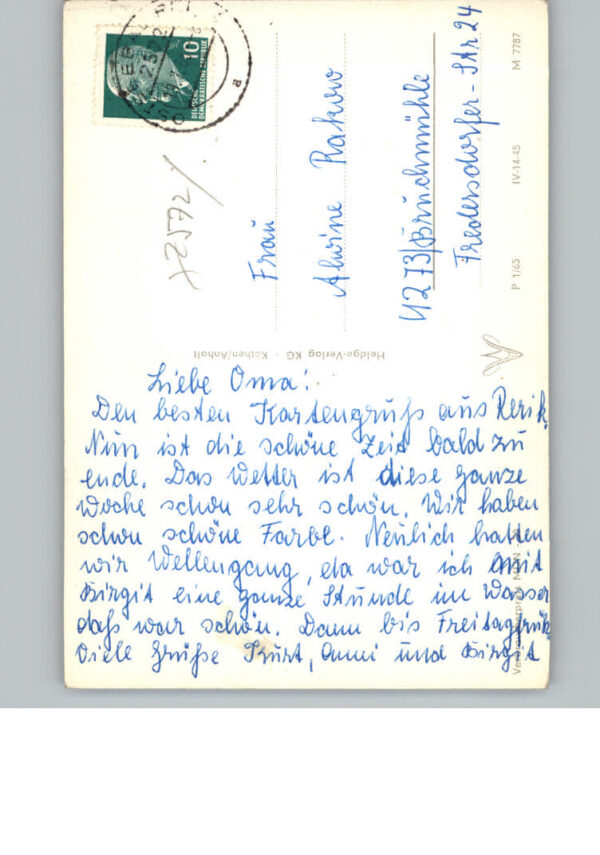 10
DEUTSCHE
DEMOKRATISCHE REPUBLIK
a
Frau
Alwine Rakow
1273/Bruchmühle
Fredersdorfer-Str 24
M 7787
IV-14-45
P 1/65
Heldge-Verlag KG · Köthen/Anhalt
Liebe Oma!
Den besten Kartengruß aus Rerik.
Nun ist die schöne Zeit bald zu
ende. Das Wetter ist diese ganze
Woche schon sehr schön. Wir haben
schon schöne Farbe. Neulich hatten
wir Wellengang, da war ich mit
Birgit eine ganze Stunde im Wasser
daß war schön. Dann bis Freitag
Viele Grüße Kurt, Anni und Birgit